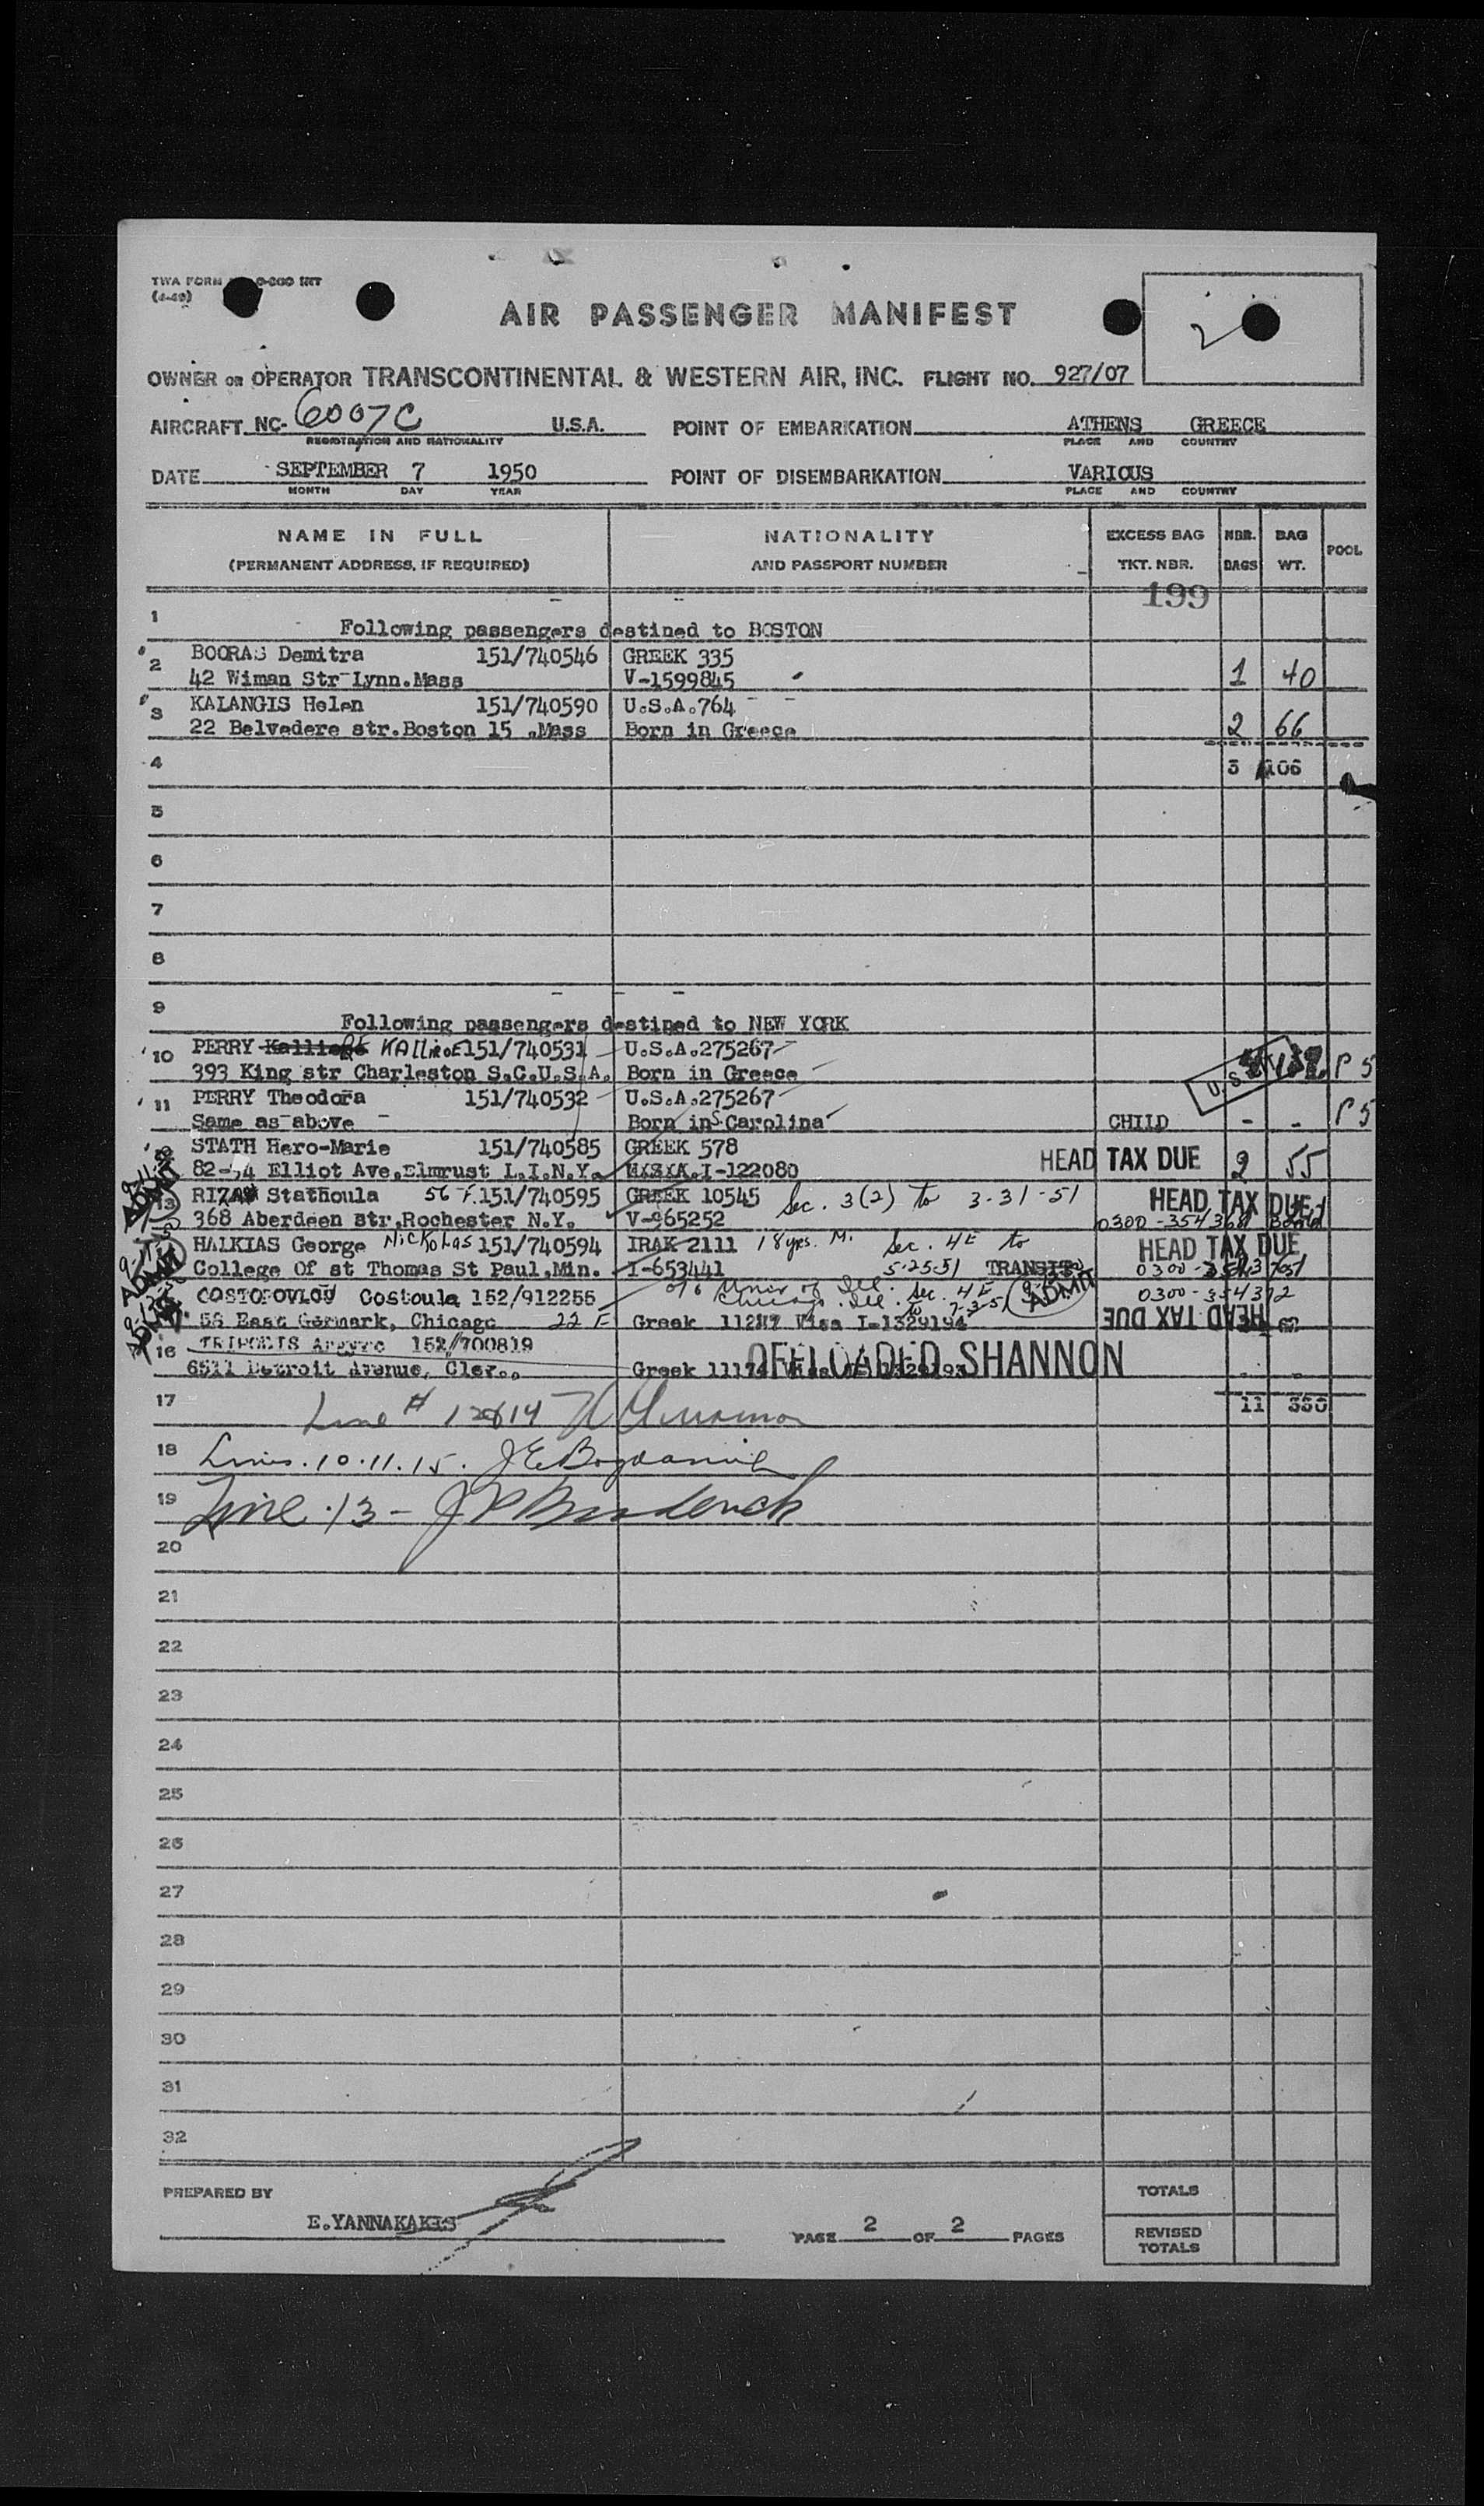 TWA FORM 0-200 INT
(4-49)
AIR PASSENGER MANIFEST
2
OWNER OR OPERATOR TRANSCONTINENTAL & WESTERN AIR, INC. FLIGHT NO. 927/07
AIRCRAFT NC- 6007C U.S.A. POINT OF EMBARKATION ATHENS GREECE
REGISTRATION AND NATIONALITY PLACE AND COUNTRY
DATE SEPTEMBER 7 1950 POINT OF DISEMBARKATION VARIOUS
MONTH DAY YEAR PLACE AND COUNTRY
NAME IN FULL NATIONALITY EXCESS BAG NBR. BAG POOL
(PERMANENT ADDRESS, IF REQUIRED) AND PASSPORT NUMBER TKT. NBR. BAGS WT.
199
1
Following passengers destined to BOSTON
2 BOORAS Demitra 151/740546 GREEK 335
42 Wiman Str Lynn.Mass V-1599845 1 40
3 KALANGIS Helen 151/740590 U.S.A.764
22 Belvedere str.Boston 15 .Mass Born in Greece 2 66
4 3 106
5
6
7
8
9
Following passengers destined to NEW YORK
10 PERRY KAlliroE 151/740531 U.S.A.275267
393 King str Charleston S.C.U.S.A. Born in Greece P 5
11 PERRY Theodora 151/740532 U.S.A.275267 P 5
Same as above Born in S Carolina CHILD - -
STATH Hero-Marie 151/740585 GREEK 578
82-54 Elliot Ave.Elmrust L.I.N.Y. I-122080 HEAD TAX DUE 2 55
13 Stathoula 56 F. 151/740595 GREEK 10545 Sec. 3(2) to 3-31-51 HEAD TAX DUE
368 Aberdeen str.Rochester N.Y. V-965252 0300-354368
HALKIAS George Nickolas 151/740594 IRAK 2111 18 yrs. M. Sec. 4E to HEAD TAX DUE
College Of st Thomas St Paul.Min. I-653441 5-25-51 TRANSIT
ADMIT
COSTOPOVLOU Costoula 152/912255 Univ of Ill. Sec. 4E 0300-354372
Chicago. Ill. to 7-3-51
ADMIT
58 East Germark, Chicago 22 F Greek Visa I-1329194 HEAD TAX DUE
16 TRIPOLIS 152/700819
6511 Detroit Avenue, Clev., Greek 11174 OFFLOADED SHANNON
17 Line # 11 350
18 Lines. 10.11.15. J E
19 Line 13 -
20
21
22
23
24
25
26
27
28
29
30
31
32
PREPARED BY TOTALS
E.YANNAKAKIS
PAGE 2 OF 2 PAGES
REVISED
TOTALS